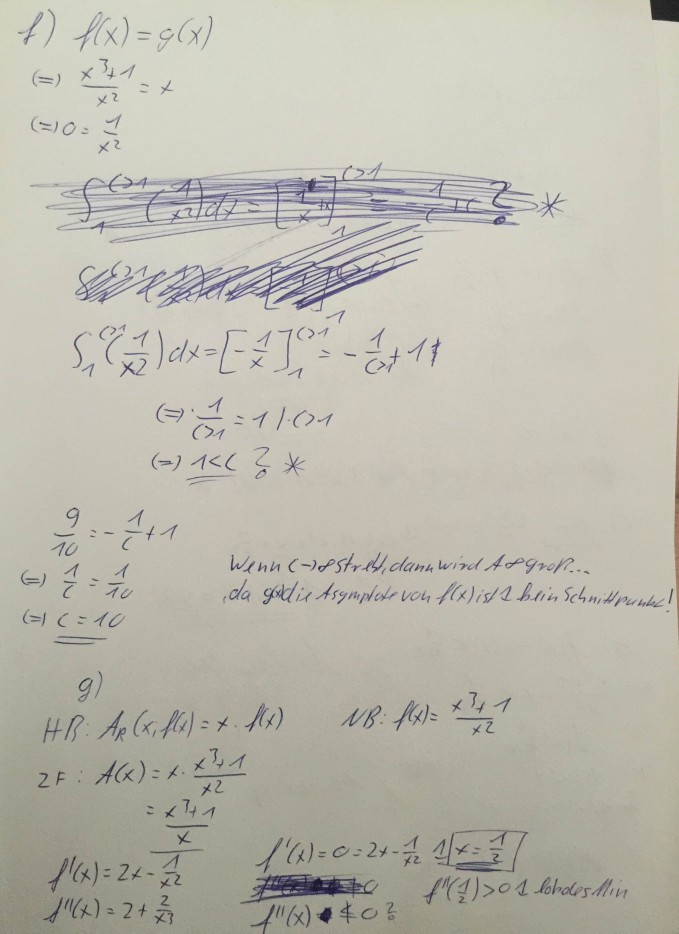 f) f(x) = g(x)
(=) x³+1 / x² = x
(=) 0 = 1/x²
∫₁^(c>1) (1/x²) dx = [-1/x]₁^(c>1) = - 1/(c>1) + 1
(=) 1/(c>1) = 1 | · c>1
(=) 1<c ? *
9/10 = - 1/c + 1
(=) 1/c = 1/10
(=) c = 10
Wenn c→∞ strebt, dann wird A ∞ groß...
, da die Asymptote von f(x) ist kein Schnittpunkt!
g)
HB: A_R(x, f(x)) = x · f(x) NB: f(x) = x³+1 / x²
ZF: A(x) = x · x³+1 / x²
= x³+1 / x
f'(x) = 2x - 1/x² f'(x) = 0 = 2x - 1/x² x = 1/2
f''(x) = 2 + 2/x³ f''(x) ≠ 0 ? f''(1/2) > 0 Min